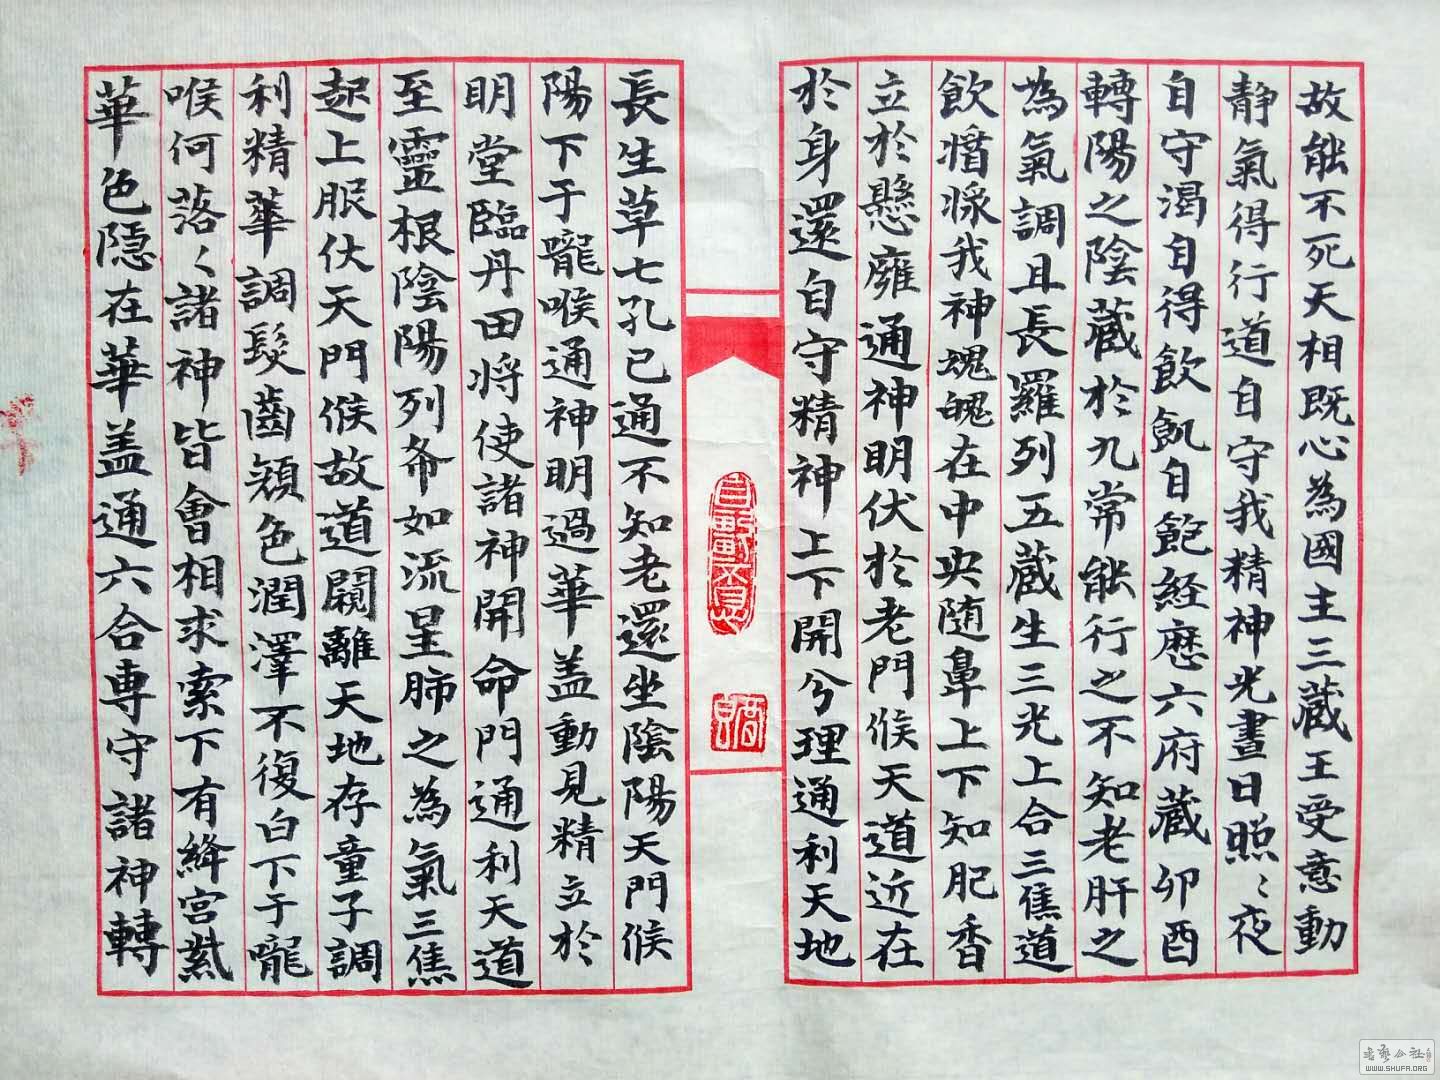 故能不死天相既心為國主三藏王受意動
靜氣得行道自守我精神光晝日照〻夜
自守渴自得飲飢自飽经歷六府藏卯酉
轉陽之陰藏於九常能行之不知老肝之
為氣調且長羅列五藏生三光上合三焦道
飲漿我神魂魄在中央随鼻上下知肥香
立於懸廱通神明伏於老門候天道近在
於身還自守精神上下開兮理通利天地
長生草七孔已通不知老還坐陰陽天門候
陽下于嚨喉通神明過華盖動見精立於
明堂臨丹田将使諸神開命門通利天道
至靈根陰陽列布如流星肺之為氣三焦
起上服伏天門候故道闚離天地存童子調
利精華調髮齒顏色潤澤不復白下于嚨
喉何落〻諸神皆會相求索下有絳宮紫
華色隠在華盖通六合専守諸神轉
書藝公社
WWW.SHUFA.ORG